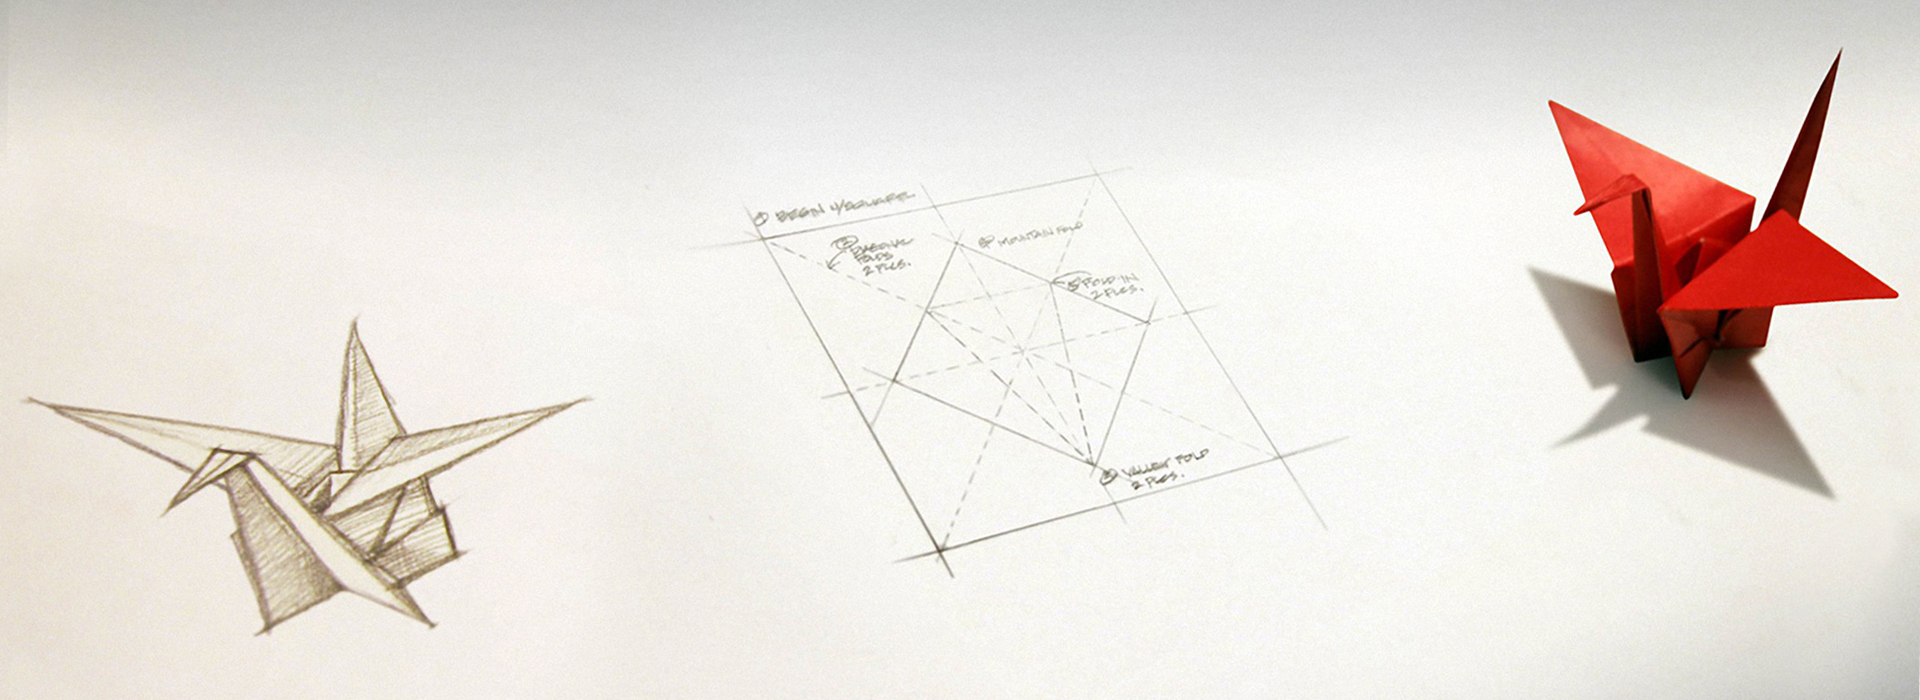 ① BEGIN W/SQUARE
② DIAGONAL
FOLDS
2 PLCS.
④ MOUNTAIN FOLD
⑤ FOLD IN
2 PLCS.
③ VALLEY FOLD
2 PLCS.